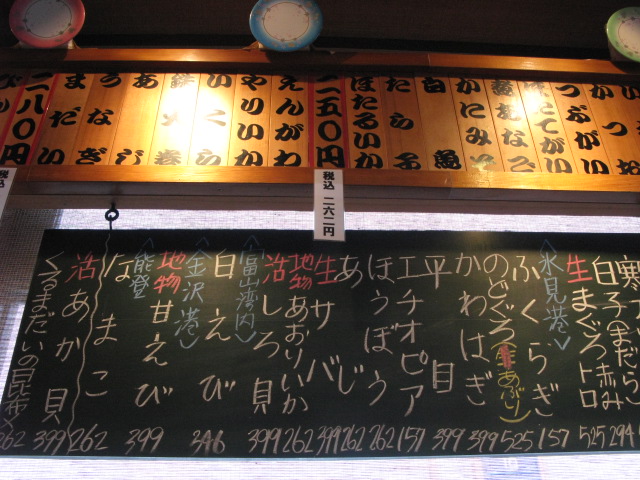 つぶがい
ほたてがい
煮あなご
かにみそ
白魚
たらこ
ほたるいか
二五〇円
税込 二六二円
えんがわ
やりいか
いくら
鉄火巻
あじ
うなぎ
まだい
二八〇円
税込
白子(まだら)
赤み 294
生まぐろトロ 525
<氷見港>
ふくらぎ 157
のどぐろ(あぶり) 525
かわはぎ 399
平目 399
エチオピア 157
ほうぼう 262
あじ 262
生サバ 399
地物あおりいか 262
活しろ貝 399
<富山湾内>
白えび 346
<金沢港>
地物甘えび 399
<能登>
なまこ 262
活あか貝 399
くるまだいの昆布〆 262